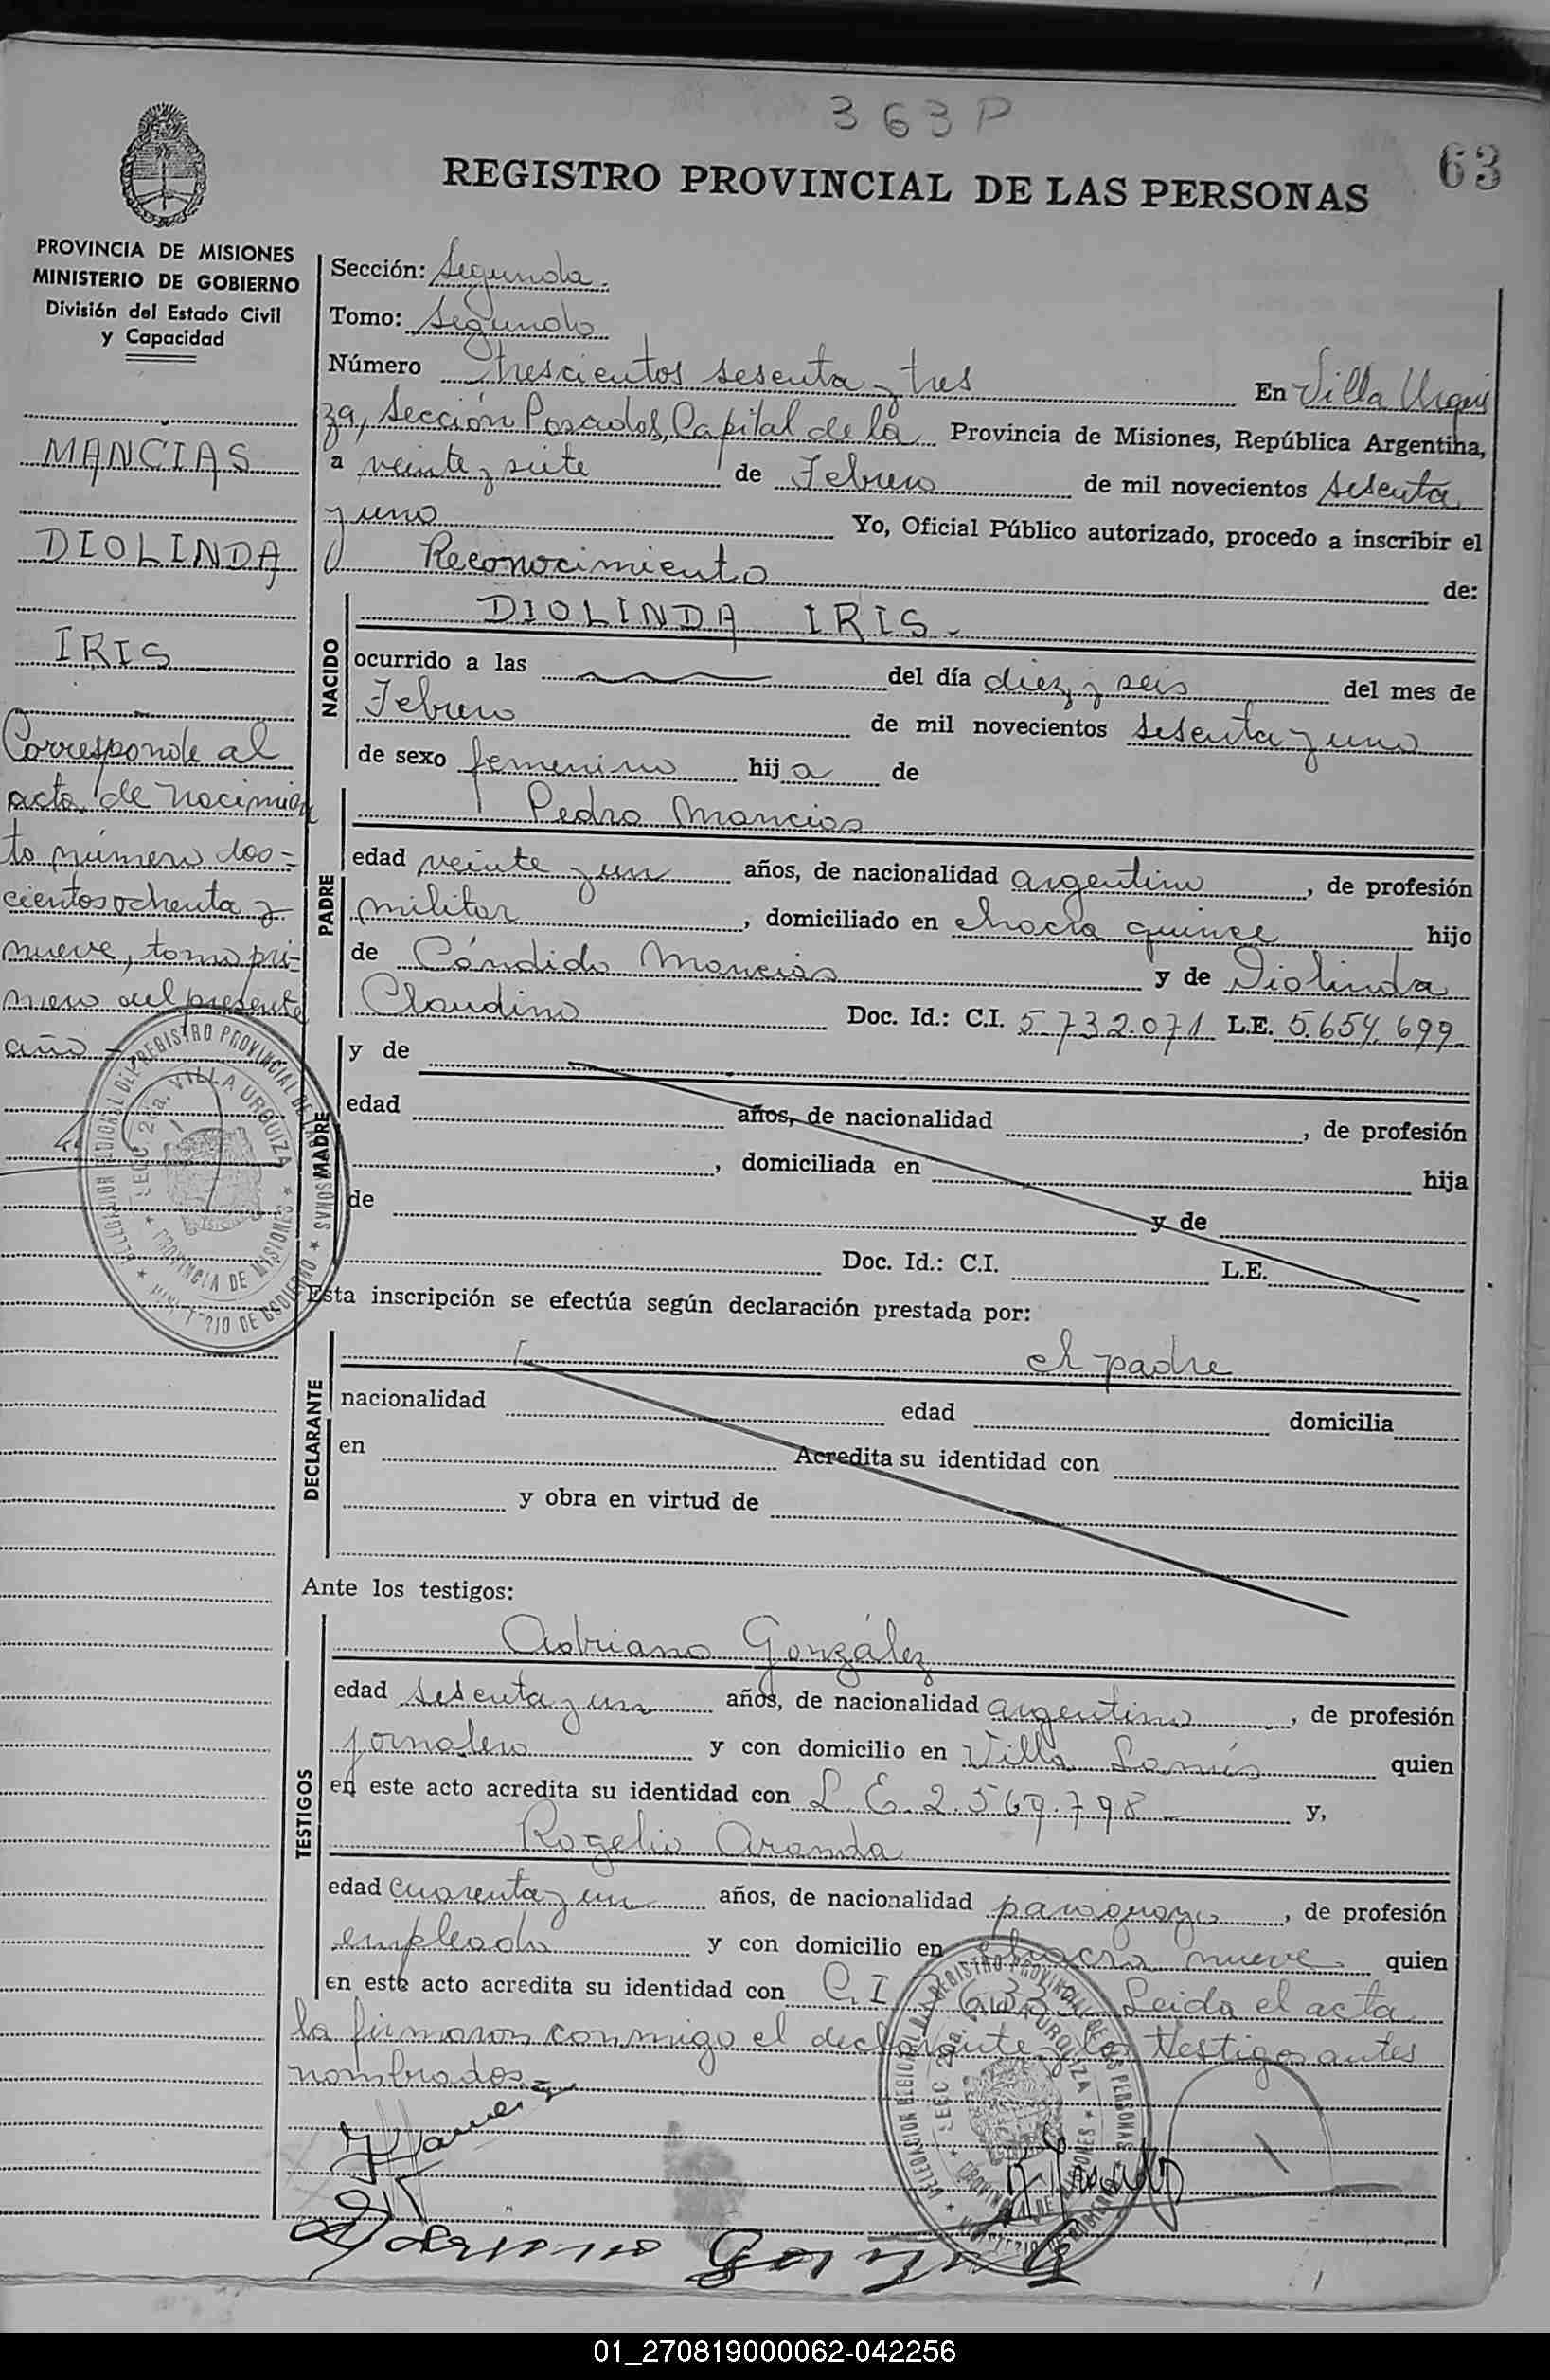 363 P
63
REGISTRO PROVINCIAL DE LAS PERSONAS
PROVINCIA DE MISIONES
MINISTERIO DE GOBIERNO
División del Estado Civil
y Capacidad
MANCIAS
DIOLINDA
IRIS
Corresponde al
acta de nacimien
to número dos=
cientos ochenta y
nueve, tomo pri=
mero del presente
año
Sección: Segunda.
Tomo: Segundo
Número trescientos sesenta y tres En Villa Urqui
za, Sección Posadas, Capital de la Provincia de Misiones, República Argentina,
a veinte y siete de Febrero de mil novecientos sesenta
y uno Yo, Oficial Público autorizado, procedo a inscribir el
Reconocimiento de:
NACIDO
DIOLINDA IRIS.
ocurrido a las del día diez y seis del mes de
Febrero de mil novecientos sesenta y uno
de sexo femenino hija de
PADRE
Pedro Mancias
edad veinte y un años, de nacionalidad argentino, de profesión
militar, domiciliado en chacra quince hijo
de Cándido Mancias y de Diolinda
Claudino Doc. Id.: C.I. 5.732.071 L.E. 5.654.699
MADRE
y de
edad años, de nacionalidad , de profesión
, domiciliada en hija
de y de
Doc. Id.: C.I. L.E.
Esta inscripción se efectúa según declaración prestada por:
DECLARANTE
el padre
nacionalidad edad domicilia
en Acredita su identidad con
y obra en virtud de
Ante los testigos:
TESTIGOS
Adriano González
edad sesenta y un años, de nacionalidad argentino, de profesión
jornalero y con domicilio en Villa Lanús quien
en este acto acredita su identidad con L.E. 2.569.798 y,
Rogelio Aranda
edad cuarenta y un años, de nacionalidad paraguayo, de profesión
empleado y con domicilio en chacra nueve quien
en este acto acredita su identidad con C.I. Leida el acta
la firmaron conmigo el declarante y los testigos antes
nombrados
DELEGACION REGIONAL DEL REGISTRO PROVINCIAL DE LAS PERSONAS
SECC. 2da. VILLA URQUIZA
PROVINCIA DE MISIONES
MINISTERIO DE GOBIERNO
01_270819000062-042256